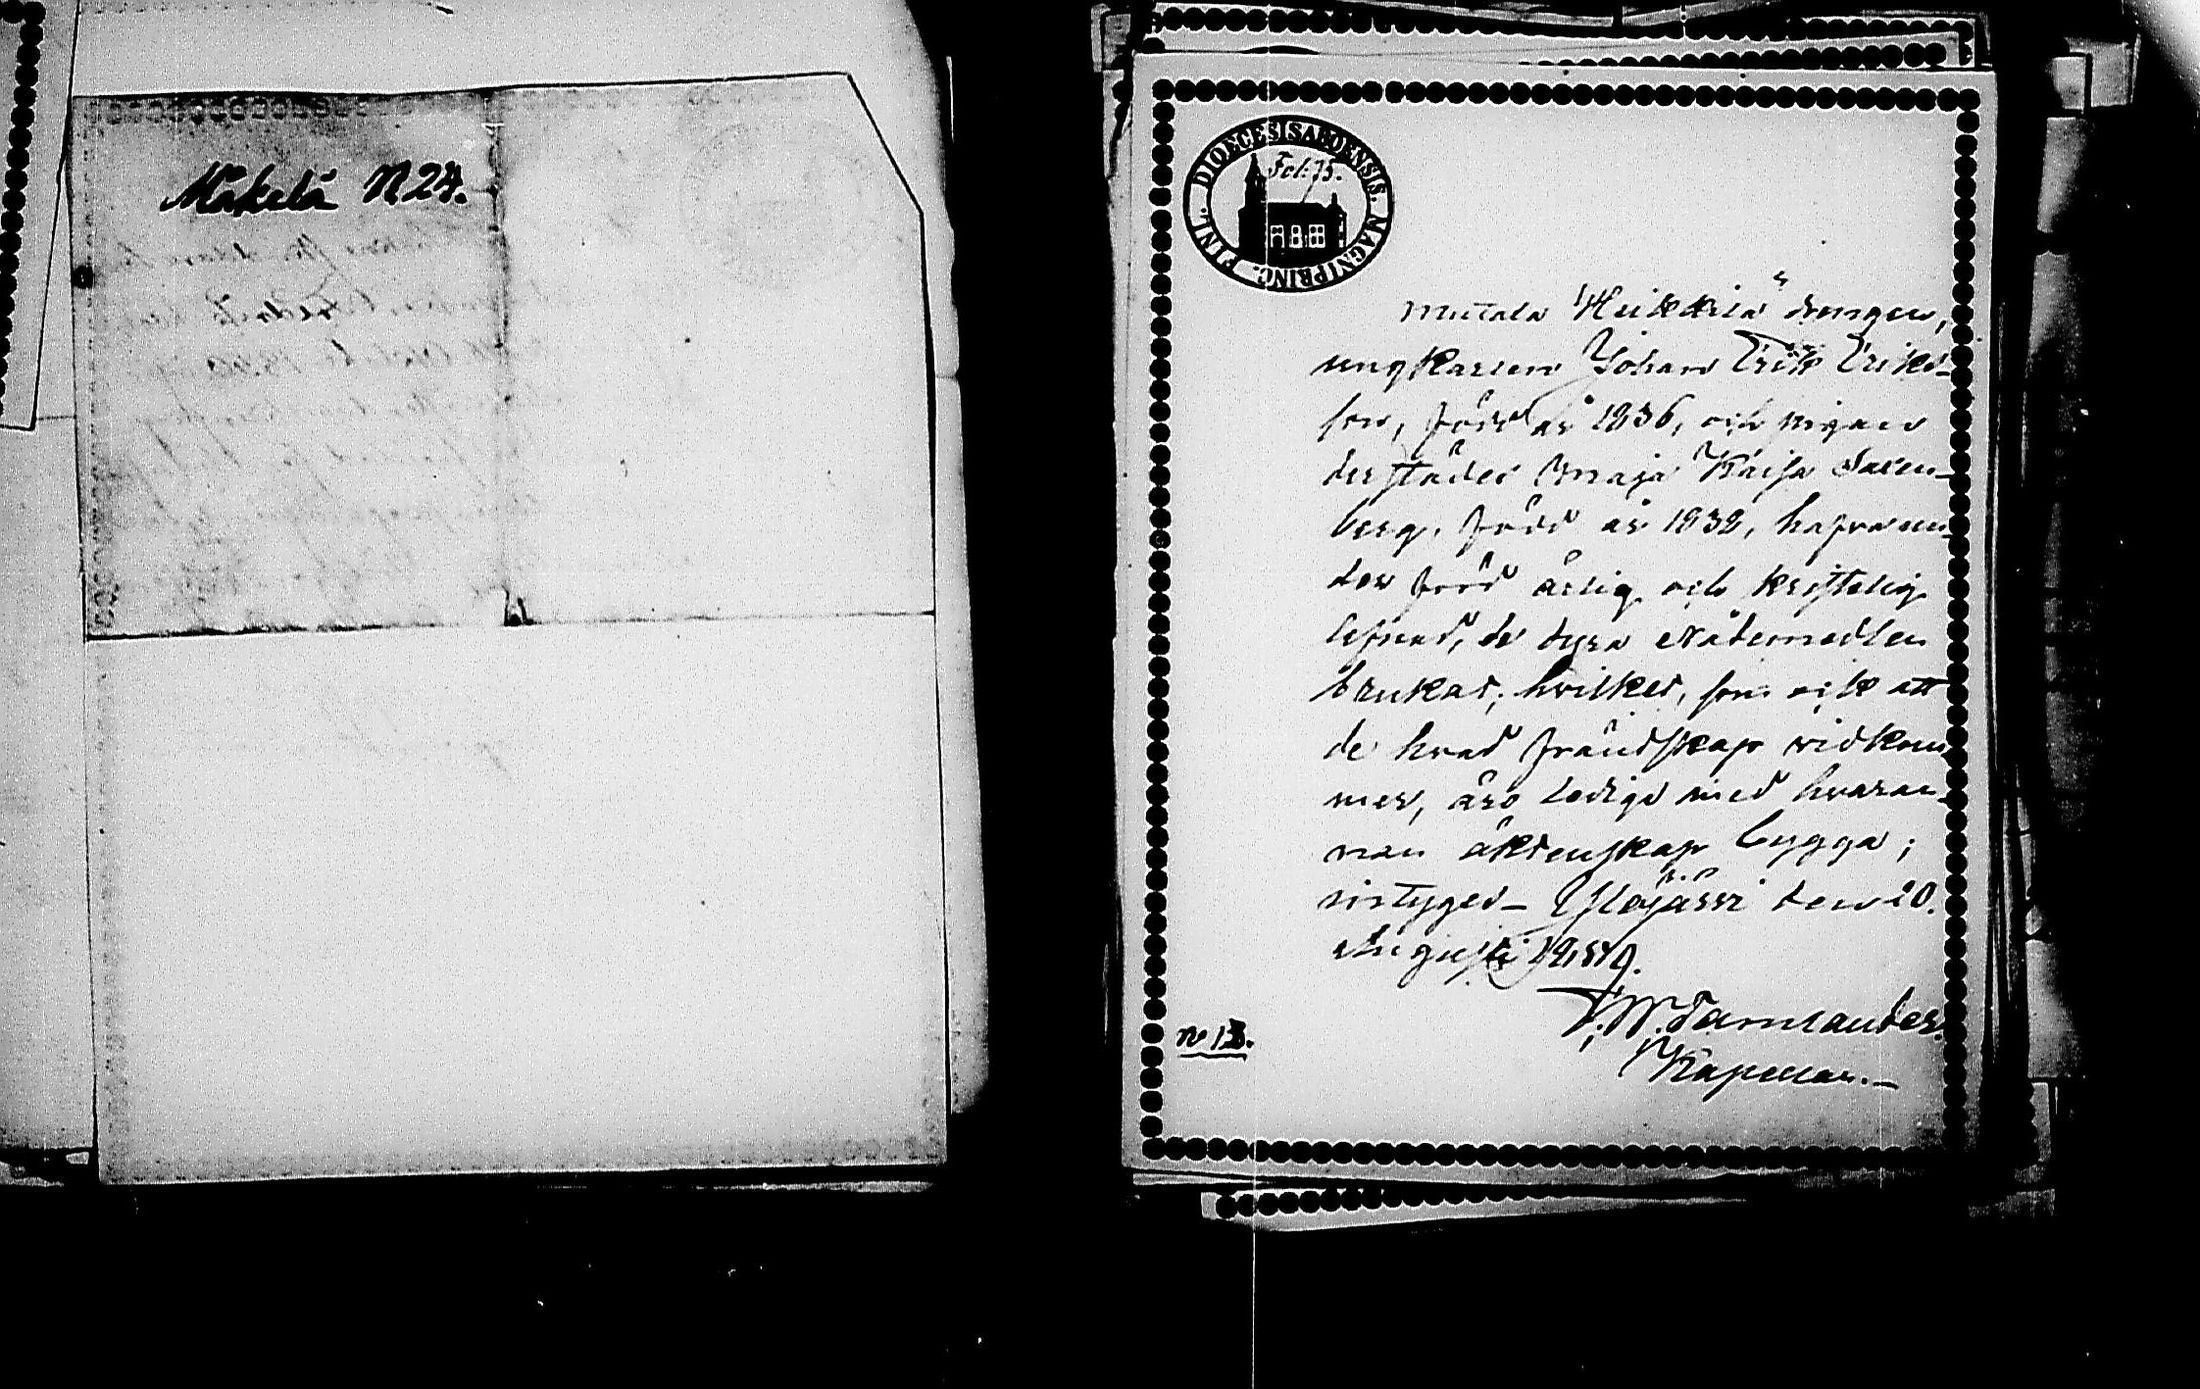 Mäkelä N 24.
DIOECESIS ABOENSIS. MAGNI PRINC. FINL.
Fol: 75.
Mutala Heikkilä drengen,
ungkarlen Johan Erik Eriks-
son, född år 1836, och pigan
derstädes Maja Kaisa
berg, född år 1832, hafva un-
der förd ärlig och kristelig
lefnad, de dyra Nådemedlen
brukat; hvilket, som ock att
de hvad frändskap vidkom-
mer, äro lediga med hvaran-
nan äktenskap bygga;
vistyges_ Ylöjärvi den 20.
Augusti 1859.
Kapellan._
n:o 13.